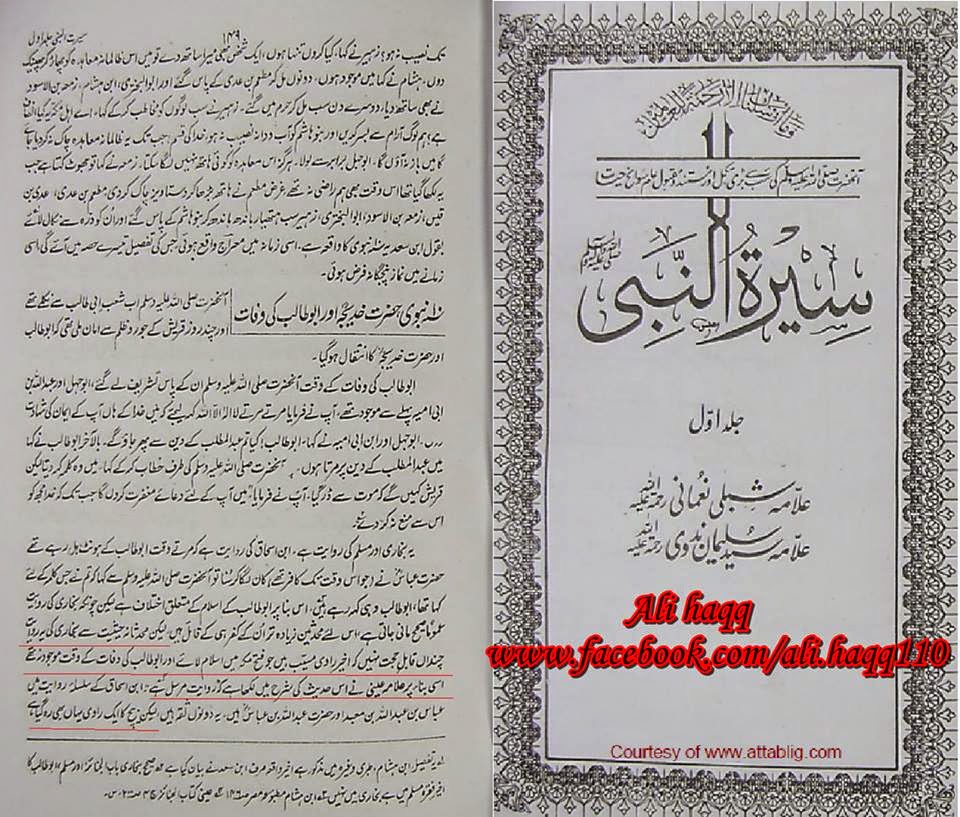 سیرت النبی جلد اول
۱۴۹
تک نصیب نہ ہو؟ زہیر نے کہا، کیا کروں تنہا ہوں، ایک شخص بھی میرا ساتھ دے تو میں اس ظالمانہ معاہدہ کو پھاڑ کر پھینک
دوں، ہشام نے کہا میں موجود ہوں، دونوں مل کر مطعم بن عدی کے پاس گئے اور ابو البختری، ابن ہشام، زمعہ بن الاسود
نے بھی ساتھ دیا، دوسرے دن سب مل کر حرم میں گئے، زہیر نے سب لوگوں کو مخاطب کر کے کہا، اے اہل مکہ یہ کیا انصاف
ہے، ہم لوگ آرام سے بسر کریں اور بنو ہاشم کو آب و دانہ نصیب نہ ہو، خدا کی قسم جب تک یہ ظالمانہ معاہدہ چاک نہ کر دیا جائے
گا میں باز نہ آؤں گا، ابو جہل برابر سے بولا، ہرگز اس معاہدہ کو کوئی ہاتھ نہیں لگا سکتا، زمعہ نے کہا تو جھوٹ کہتا ہے جب
یہ لکھا گیا تھا، اس وقت بھی ہم راضی نہ تھے غرض مطعم نے ہاتھ بڑھا کر دستاویز چاک کر دی، مطعم بن عدی، عدی بن
قیس، زمعہ بن الاسود، ابو البختری، زہیر سب ہتھیار باندھ باندھ کر بنو ہاشم کے پاس گئے اور ان کو درہ سے نکال لائے
بقول ابن سعد یہ ۱۰ نبوی کا واقعہ ہے، اسی زمانہ میں معراج واقع ہوئی، جس کی تفصیل تیسرے حصہ میں آئے گی اسی
زمانے میں نماز پنجگانہ فرض ہوئی۔
۱۰ نبوی حضرت خدیجہؓ اور ابو طالب کی وفات
آنحضرت صلی اللہ علیہ وسلم اب شعب ابی طالب سے نکلے تھے
اور چند روز قریش کے جور و ظلم سے امان ملی تھی کہ ابو طالب
اور حضرت خدیجہؓ کا انتقال ہو گیا۔
ابو طالب کی وفات کے وقت آنحضرت صلی اللہ علیہ وسلم ان کے پاس تشریف لے گئے، ابو جہل اور عبداللہ بن
ابی امیہ پہلے سے موجود تھے، آپ نے فرمایا مرتے مرتے لا الہ الا اللہ کہہ لیجئے کہ میں خدا کے ہاں آپ کے ایمان کی شہادت
دوں، ابو جہل اور ابن ابی امیہ نے کہا، ابو طالب! کیا تم عبدالمطلب کے دین سے پھر جاؤ گے، بالآخر ابو طالب نے کہا
میں عبدالمطلب کے دین پر مرتا ہوں، پھر آنحضرت صلی اللہ علیہ وسلم کی طرف خطاب کر کے کہا، میں وہ کلمہ کہہ دیتا لیکن
قریش کہیں گے کہ موت سے ڈر گیا، آپؐ نے فرمایا "میں آپ کے لئے دعائے مغفرت کروں گا جب تک کہ خدا مجھ کو
اس سے منع نہ کر دے"
یہ بخاری اور مسلم کی روایت ہے، ابن اسحاق کی روایت ہے کہ مرتے وقت ابو طالب کے ہونٹ ہل رہے تھے
حضرت عباسؓ نے (جو اس وقت تک کافر تھے) کان لگا کر سنا تو آنحضرت صلی اللہ علیہ وسلم سے کہا کہ تم نے جس کلمہ کے لئے
کہا تھا، ابو طالب وہی کہہ رہے ہیں، اس بنا پر ابو طالب کے اسلام کے متعلق اختلاف ہے لیکن چونکہ بخاری کی روایت
عموماً صحیح مانی جاتی ہے، اس لئے محدثین زیادہ تر ان کے کفر ہی کے قائل ہیں لیکن محدثانہ حیثیت سے بخاری کی یہ روایت
چنداں قابل حجت نہیں کہ اخیر راوی مسیب ہیں جو فتح مکہ میں اسلام لائے اور ابو طالب کی وفات کے وقت موجود نہ تھے
اسی بنا پر علامہ عینی نے اس حدیث کی شرح میں لکھا ہے کہ روایت مرسل ہے، ابن اسحاق کے سلسلہ روایت میں
عباس بن عبداللہ بن معبد اور حضرت عبداللہ بن عباسؓ ہیں، یہ دونوں ثقہ ہیں، لیکن بیچ کا ایک راوی یہاں بھی رہ گیا ہے
یہ تفصیل ابن ہشام، طبری وغیرہ میں مذکور ہے اخیر واقعہ صرف ابن سعد نے بیان کیا ہے صحیح بخاری باب الجنائز اور مسلم، ابو طالب کا
اخیر فقرہ مسلم میں ہے بخاری میں نہیں ابن ہشام مطبوعہ مصر ص۱۴۶ عینی کتاب الجنائز ج۴
آنحضرت صلی اللہ علیہ وسلم کی سب سے بڑی مکمل اور مستند و مقبول عام سوانح حیات
سیرۃ النبی
صلی اللہ علیہ وسلم
جلد اوّل
علامہ شبلی نعمانی رحمۃ اللہ علیہ
علامہ سید سلیمان ندوی رحمۃ اللہ علیہ
Ali haqq
www.facebook.com/ali.haqq110
Courtesy of www.attablig.com